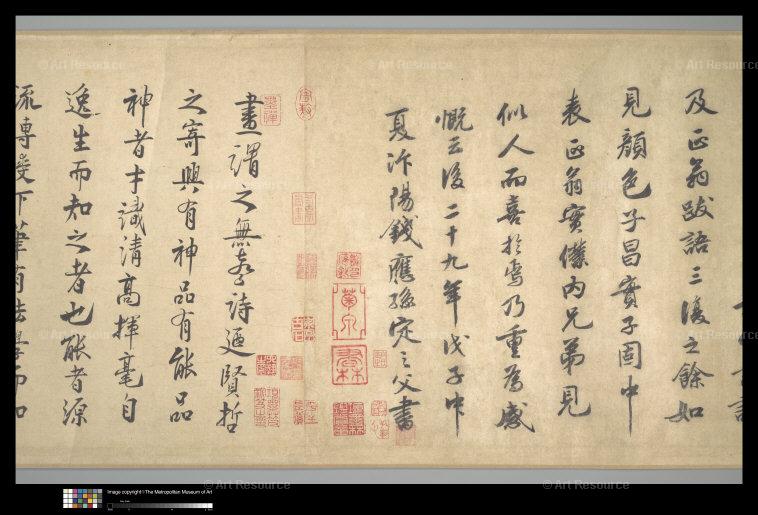 及正翁跋語三復之餘如
見顏色子昌實子固中
表正翁實僕内兄弟見
似人而喜於焉乃重為感
慨云後二十九年戊子中
夏汴陽錢應孫定之父書
畫謂之無聲詩廼賢哲
之寄興有神品有能品
神者才識清高揮毫自
逸生而知之者也能者源
流傳受下筆有法學而知
菊泉
Art Resource
Art Resource
Art Resource
Art Resource
Art Resource
Art Resource
Image copyright © The Metropolitan Museum of Art